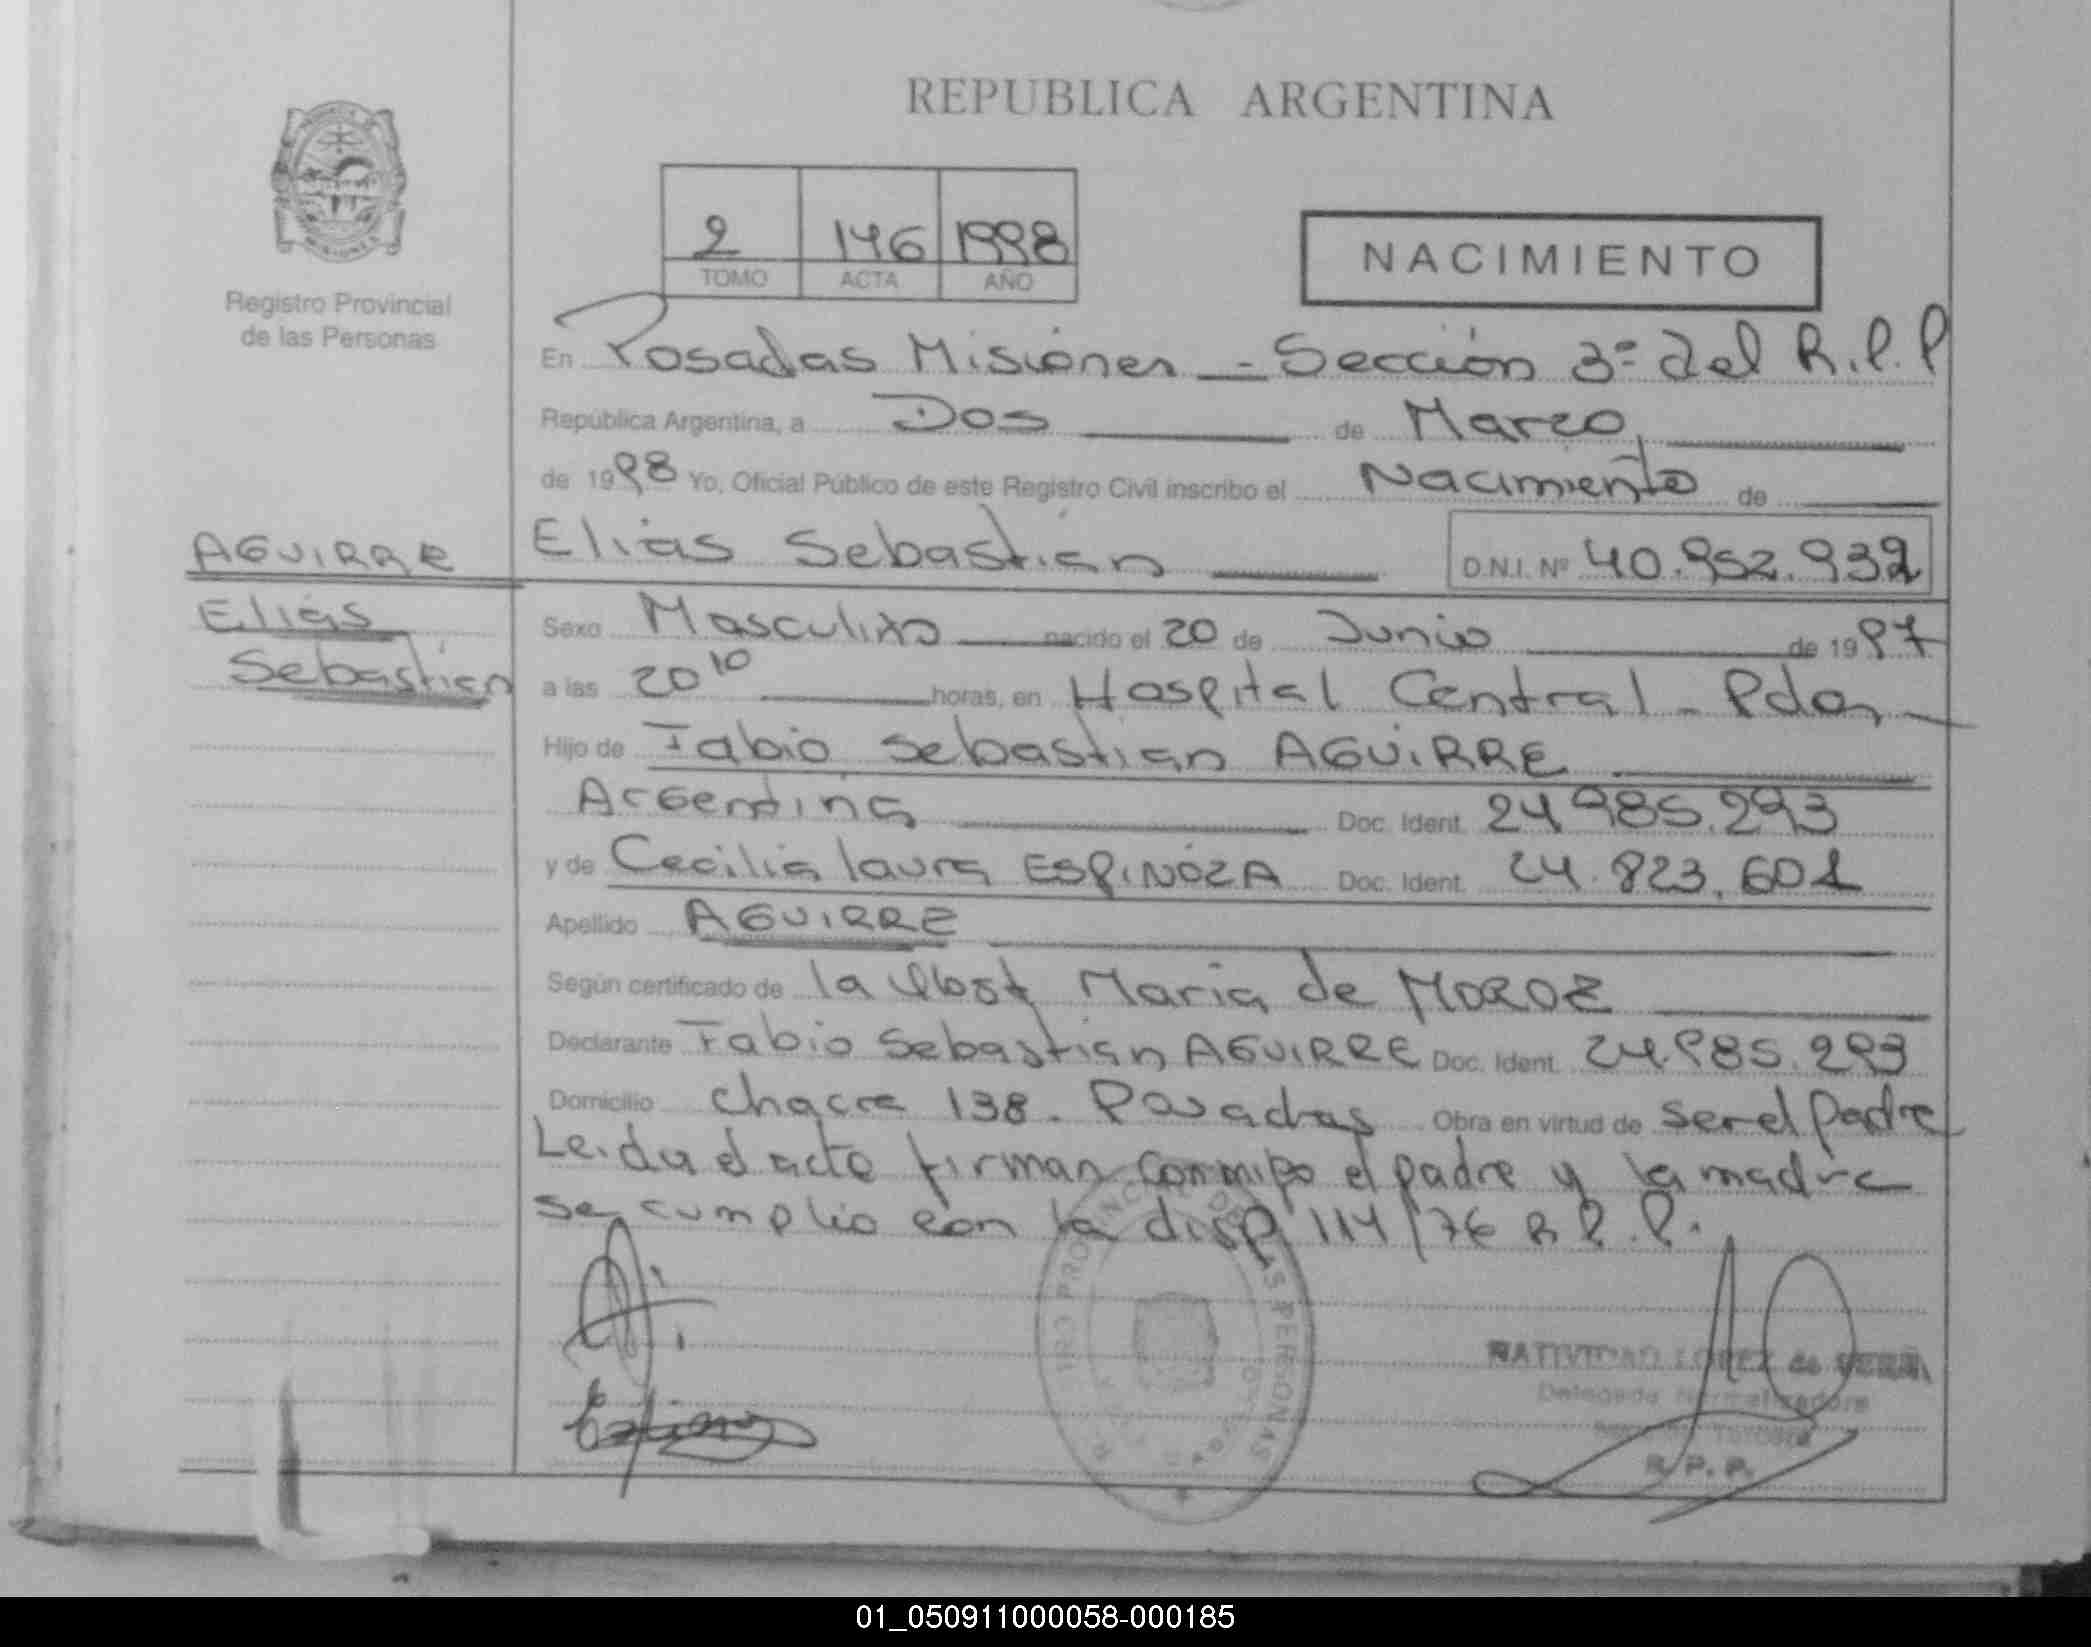 REPUBLICA ARGENTINA
2 146 1998
TOMO ACTA AÑO
NACIMIENTO
Registro Provincial
de las Personas
En Posadas Misiones - Sección 3ª del R.P.P
República Argentina, a Dos de Marzo,
de 1998 Yo, Oficial Público de este Registro Civil inscribo el Nacimiento de
AGUIRRE Elias Sebastián D.N.I. Nº 40.952.932
Elias
Sebastián
Sexo Masculino nacido el 20 de Junio de 1997
a las 20 10 horas, en Hospital Central - Pdas
Hijo de Fabio Sebastian AGUIRRE
Argentina Doc. Ident. 24.985.293
y de Cecilia laura ESPINOZA Doc. Ident. 24.823.601
Apellido AGUIRRE
Según certificado de la Obst Maria de MOROZ
Declarante Fabio Sebastián AGUIRRE Doc. Ident. 24.985.293
Domicilio Chacra 138. Posadas Obra en virtud de ser el padre
Leida el acta firman conmigo el padre y la madre
se cumplio con la disp 114/76 R.P.P.
REGISTRO PROVINCIAL DE LAS PERSONAS
NATIVIDAD LOPEZ de
Delegada Normalizadora
R.P.P.
01_050911000058-000185